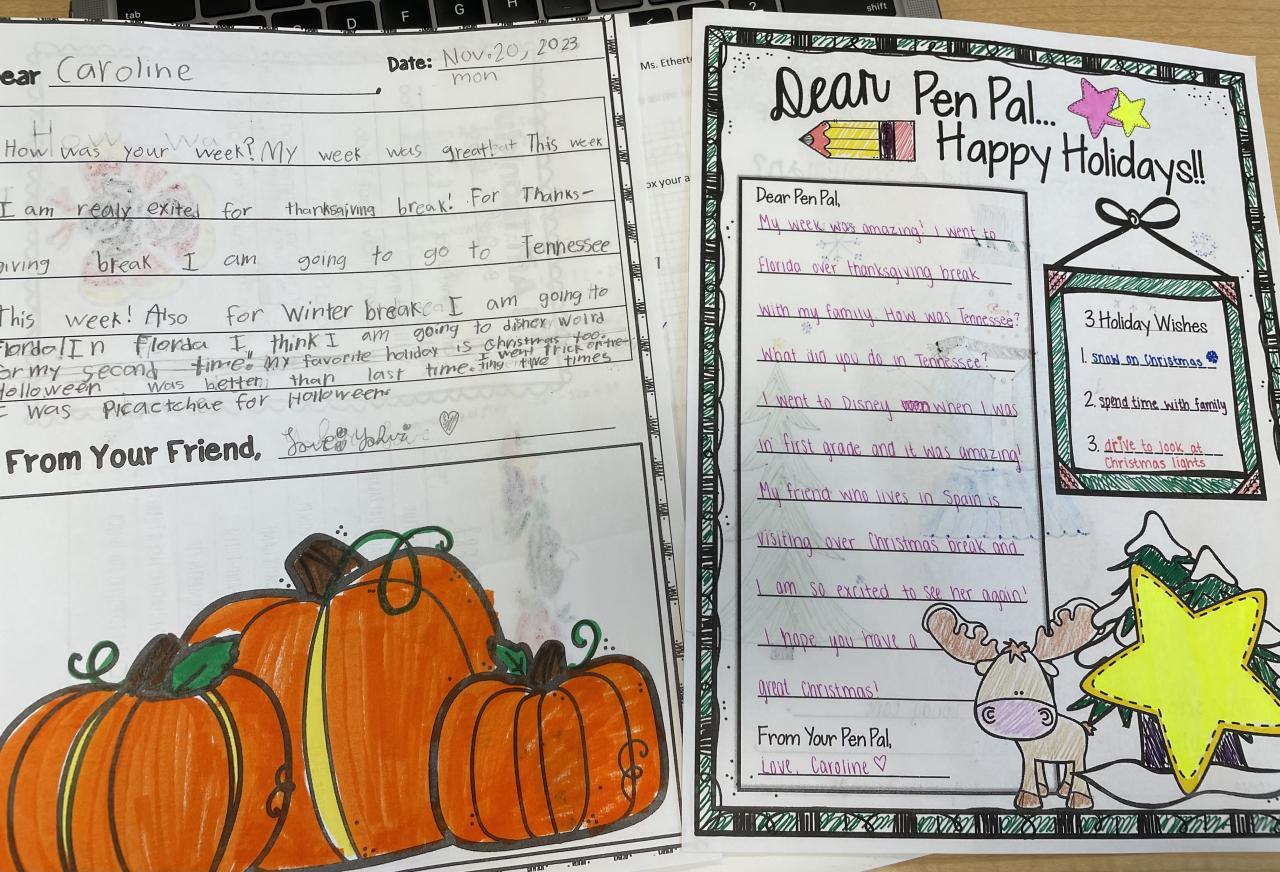 tab
D
F
G
H
?
shift
<
ear Caroline,
Date: Nov. 20, 2023
mon
How was your week? My week was great! This week
I am realy exited for thanksgiving break! For Thanks-
giving break I am going to go to Tennessee
This week! Also for Winter break I am going to
Florda! In Florda I think I am going to disney world
for my second time. My favorite holiday is Christmas too.
Holloween was better than last time. I went trick or tre-
ting two times
I was Picactchue for Halloween
From Your Friend,
Love
Ms. Ethert
ox your a
1
Dear Pen Pal...
Happy Holidays!!
Dear Pen Pal,
My week was amazing! I went to
Florida over thanksgiving break
with my family. How was Tennessee?
What did you do in Tennessee?
I went to Disney when I was
in first grade and it was amazing!
My friend who lives in Spain is
visiting over Christmas break and
I am so excited to see her again!
I hope you have a
great Christmas!
From Your Pen Pal,
Love, Caroline ♡
3 Holiday Wishes
1. snow on Christmas
2. spend time with family
3. drive to look at
Christmas lights